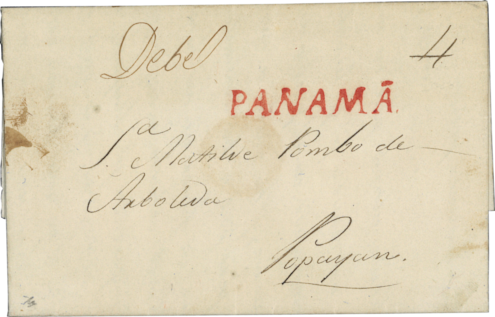 Debe
4
PANAMÁ.
S.ª Matilde Pombo de
Arboleda
Popayan.